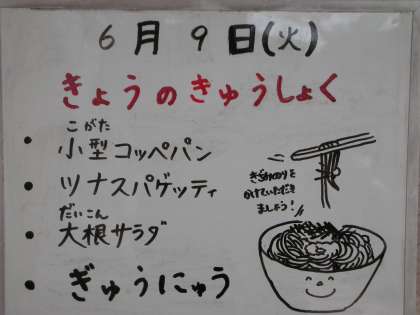 6月9日(火)
きょうのきゅうしょく
こがた
・小型コッペパン
・ツナスパゲッティ
だいこん
・大根サラダ
・ぎゅうにゅう
きざみのりを
かけていただき
ましょう!